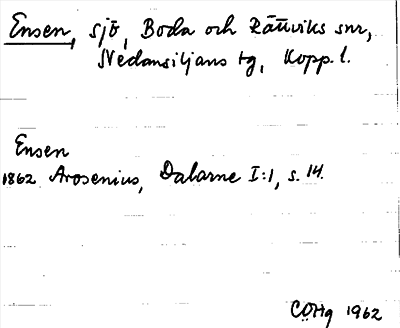 Ensen, sjö, Boda och Rättviks snr,
Nedansiljans tg, Kopp. l.
Ensen
1862 Arosenius, Dalarne I:1, s. 14.
COHg 1962